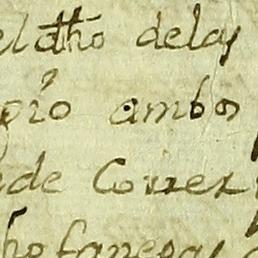 el dho delas
gio ambos
de de Correx
ho fanegas